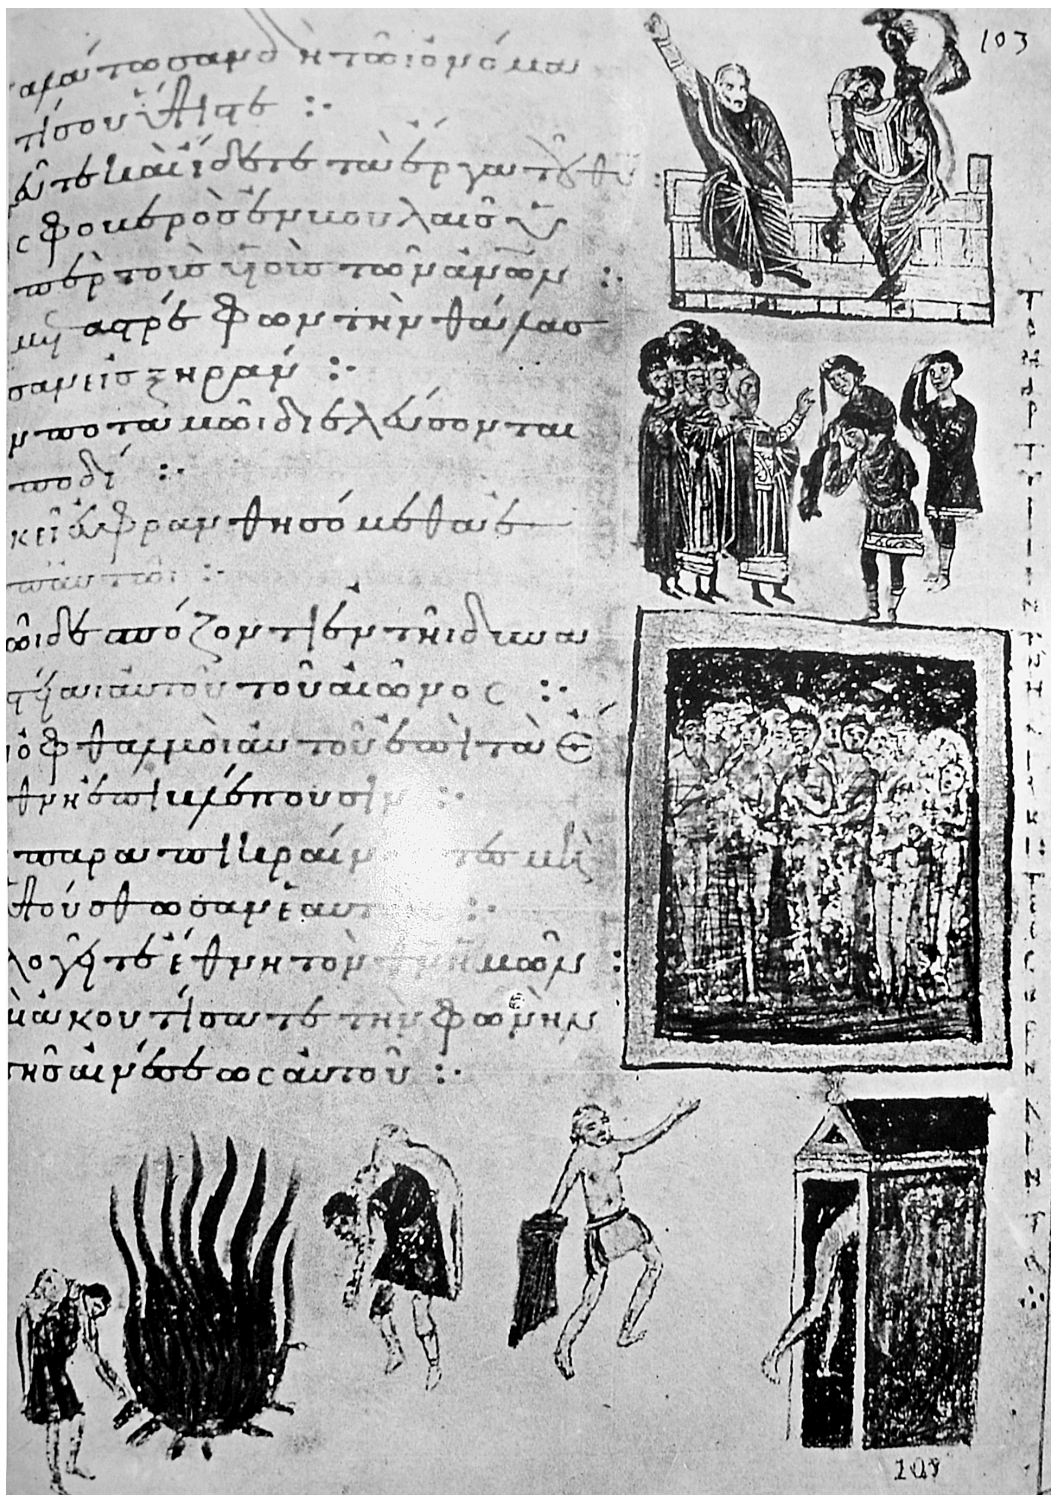 αλάτωσαν δὴ τῶι ὀνόμα
τί σου ὕψιστε :·
εῦτε καὶ ἴδετε τὰ ἔργα τοῦ θυ :
ς φοβερὸς ἐν βουλαῖς ὑ
πὲρ τοὺς υἱοὺς τῶν ἀνων :·
φων τὴν θάλασ
σαν εἰς ξηράν :·
ν ποταμῶι διελεύσονται
ποδί :·
κεῖ εὐφρανθησόμεθα ἐ
π αυτῶι :·
ῶι δεσπόζοντι ἐν τῆι δυνα
αὐτοῦ τοῦ αἰῶνος :·
ὀφθαλμοὶ αὐτοῦ ἐπὶ τὰ ἔ
θνη ἐπιβλέπουσιν :·
παραπικραίν τες μὴ
ὑψούσθωσαν ἑαυτ :·
λογεῖτε ἔθνη τὸν θν ἡμῶν :
ὶ ἀκουτίσατε τὴν φωνὴν
τῆς αἰνέσεως αὐτοῦ :·
103
ΤΟ ΜΑΡΤΥΡΙΟΝ